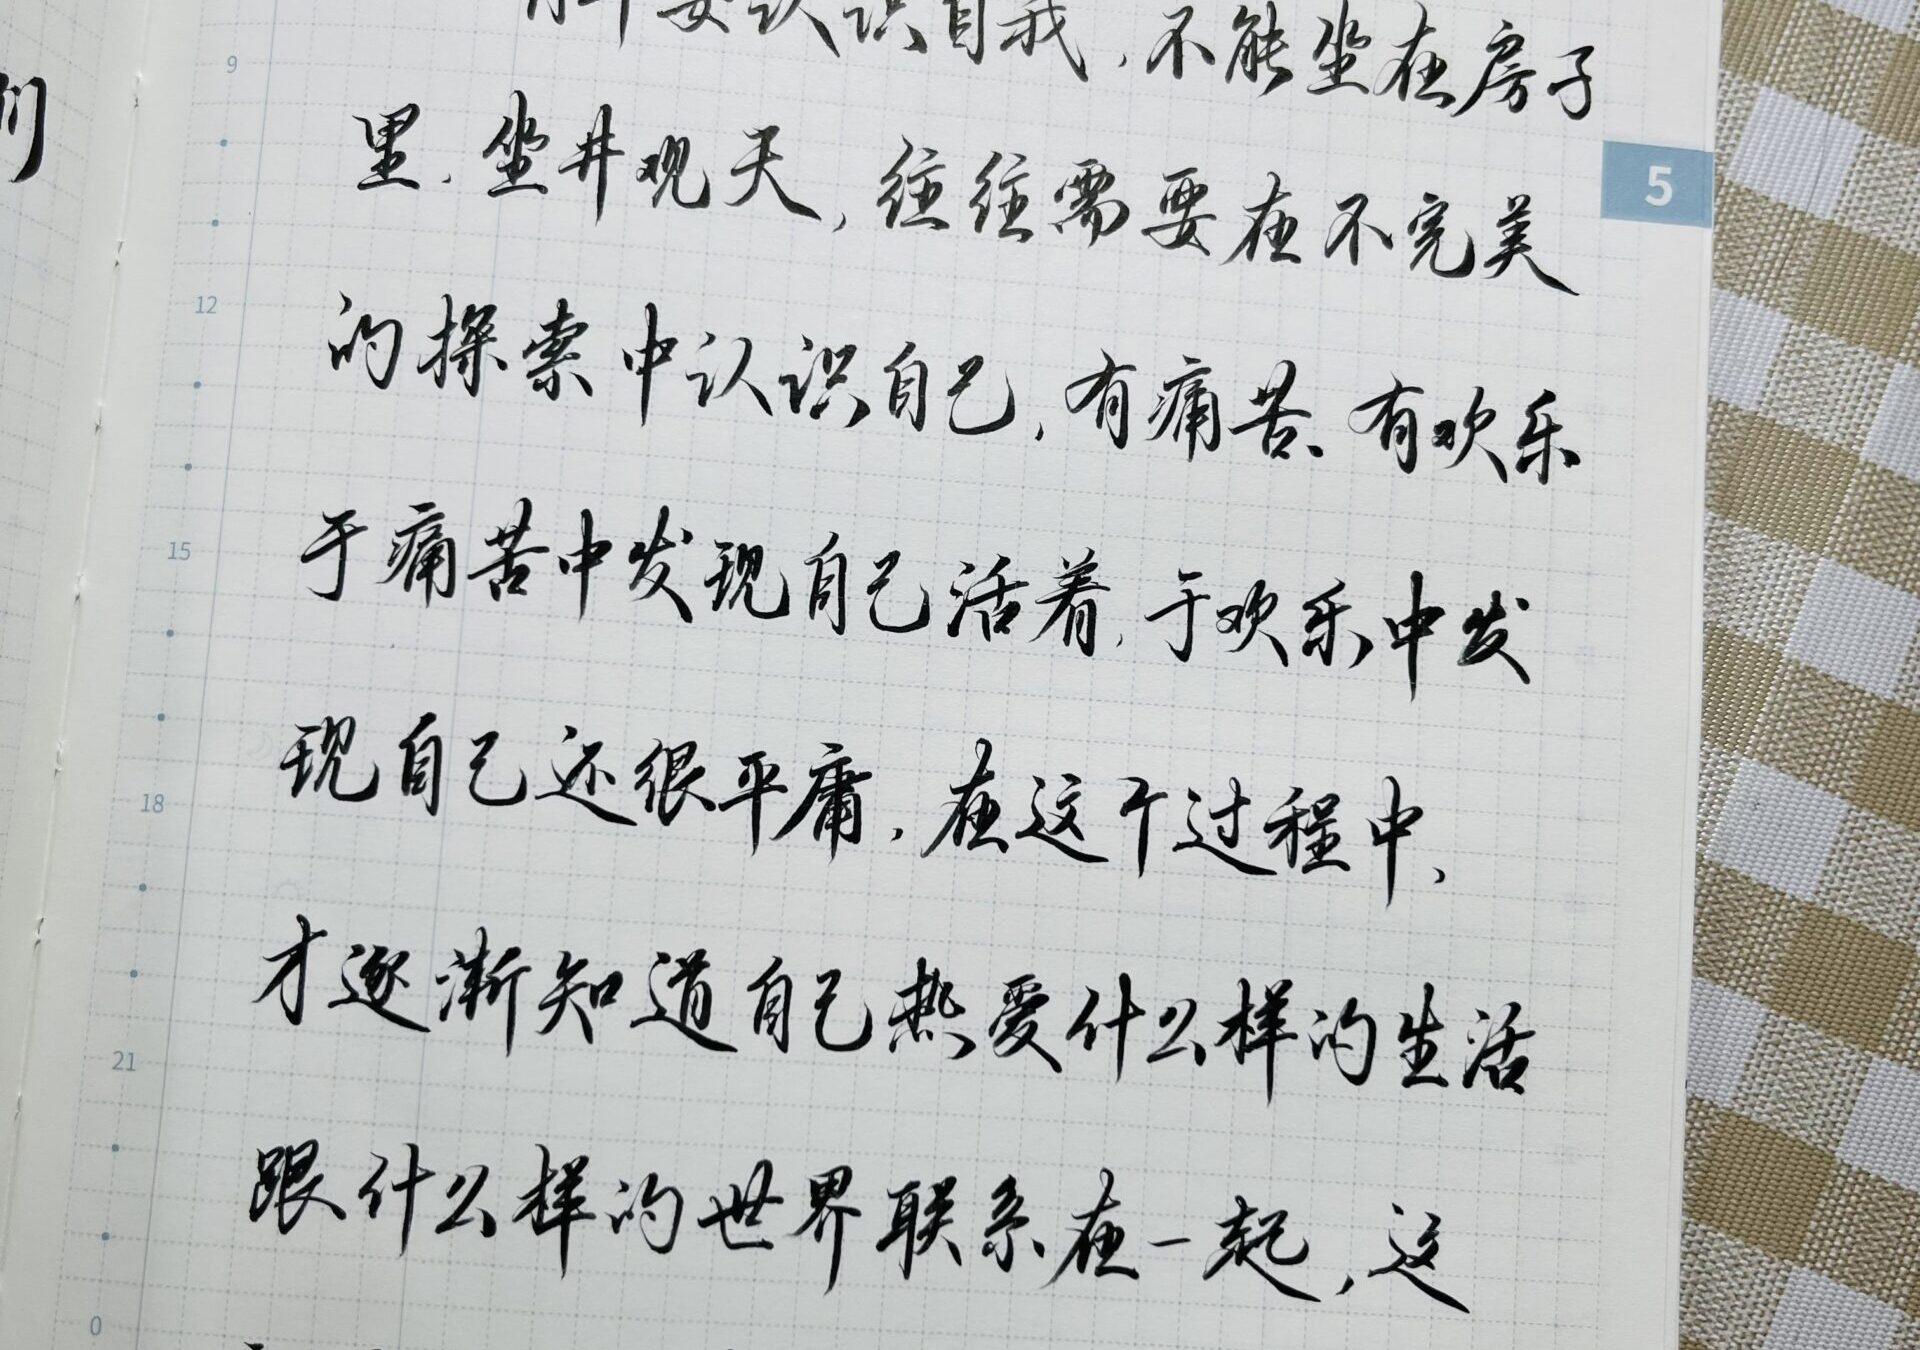 们
9
要认识自我，不能坐在房子
里，坐井观天，往往需要在不完美
5
12
的探索中认识自己，有痛苦、有欢乐
于痛苦中发现自己活着，于欢乐中发
15
现自己还很平庸，在这个过程中，
18
才逐渐知道自己热爱什么样的生活
21
跟什么样的世界联系在一起，这
0